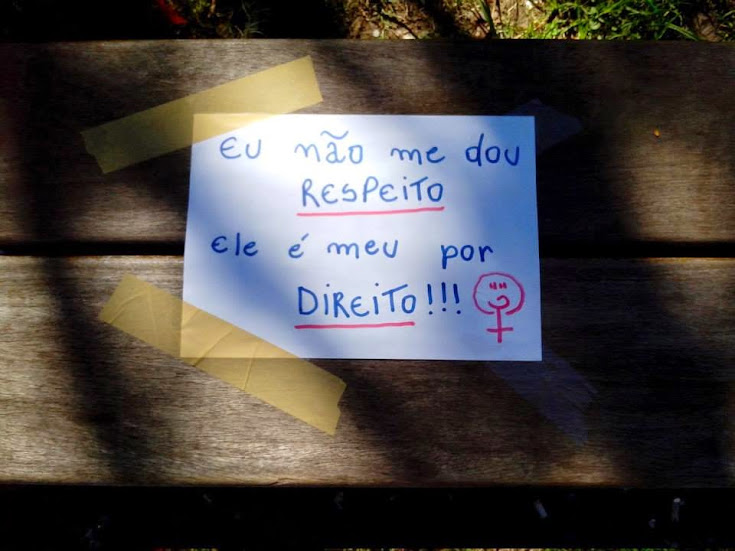 EU não me dou
RESPEITO
Ele é meu por
DIREITO!!!